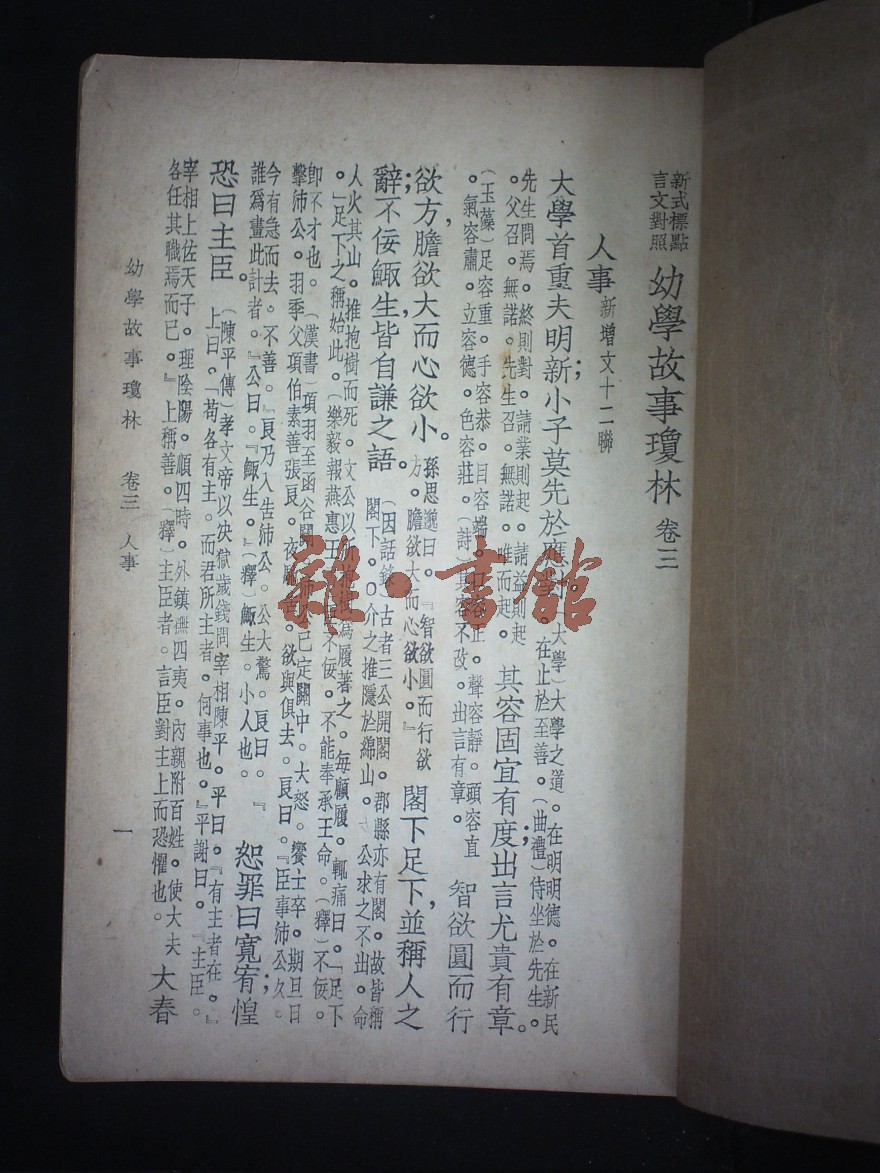 新式標點
言文對照
幼學故事瓊林 卷三
人事 新增文十二聯
大學首重夫明新；小子莫先於應
大學）大學之道。在明明德。在新民
。在止於至善。（曲禮）侍坐於先生。
先生問焉。終則對。請業則起。請益則起
。父召。無諾。先生召。無諾。唯而起。
其容固宜有度；出言尤貴有章。
（玉藻）足容重。手容恭。目容端。口容止。聲容靜。頭容直
。氣容肅。立容德。色容莊。（詩）其容不改。出言有章。
智欲圓而行
欲方，膽欲大而心欲小。
孫思邈曰。『智欲圓而行欲
方。膽欲大而心欲小。』
閣下足下，並稱人之
辭；不佞鯫生，皆自謙之語。
（因話錄）古者三公開閣。郡縣亦有閣。故皆稱
閣下。○介之推隱於綿山。公求之不出。命
人火其山。推抱樹而死。文公以所抱樹為履著之。每顧履。輒痛曰。「足下
。」足下之稱始此。（樂毅報燕惠王不佞。不能奉承王命。（釋）不佞。
卽不才也。（漢書）項羽至函谷關沛公已定關中。大怒。饗士卒。期旦日
擊沛公。羽季父項伯素善張良。夜馳告。欲與俱去。良曰。『臣事沛公久。
今有急而去。不善。『良乃入告沛公。公大驚。良曰。『
誰爲畫此計者。『公曰。『鯫生。』（釋）鯫生。小人也。
恕罪曰寬宥；惶
恐曰主臣。
（陳平傳）孝文帝以決獄歲錢問宰相陳平。平曰。『有主者在。』
上曰。「苟各有主。而君所主者。何事也。』平謝曰。『主臣。
宰相上佐天子。理陰陽。順四時。外鎮撫四夷。內親附百姓。使大夫
各任其職焉而已。』上稱善。（釋）主臣者。言臣對主上而恐懼也。
大春
幼學故事瓊林 卷三 人事 一
雜·書館